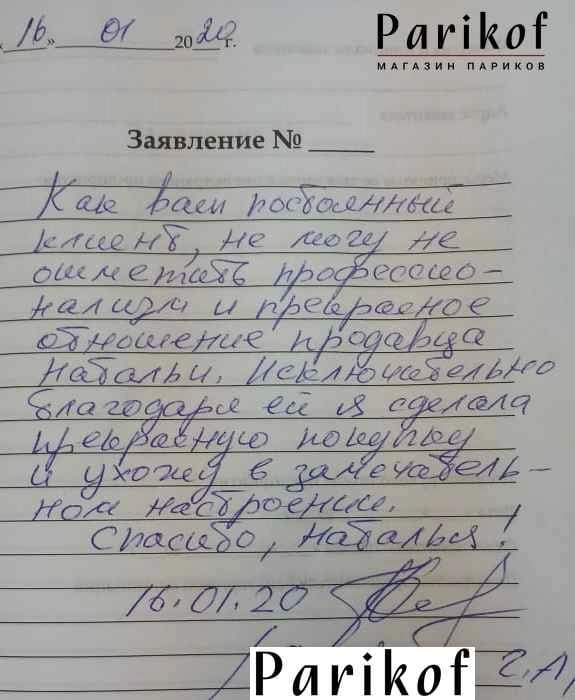 Parikof
МАГАЗИН ПАРИКОВ
« 16 » 01 2020 г.
Заявление № _____
Как ваш постоянный
клиент, не могу не
отметить профессио-
нализм и прекрасное
отношение продавца
Натальи. Исключительно
благодаря ей я сделала
прекрасную покупку
и ухожу в замечатель-
ном настроении.
Спасибо, Наталья!
16.01.20
Parikof